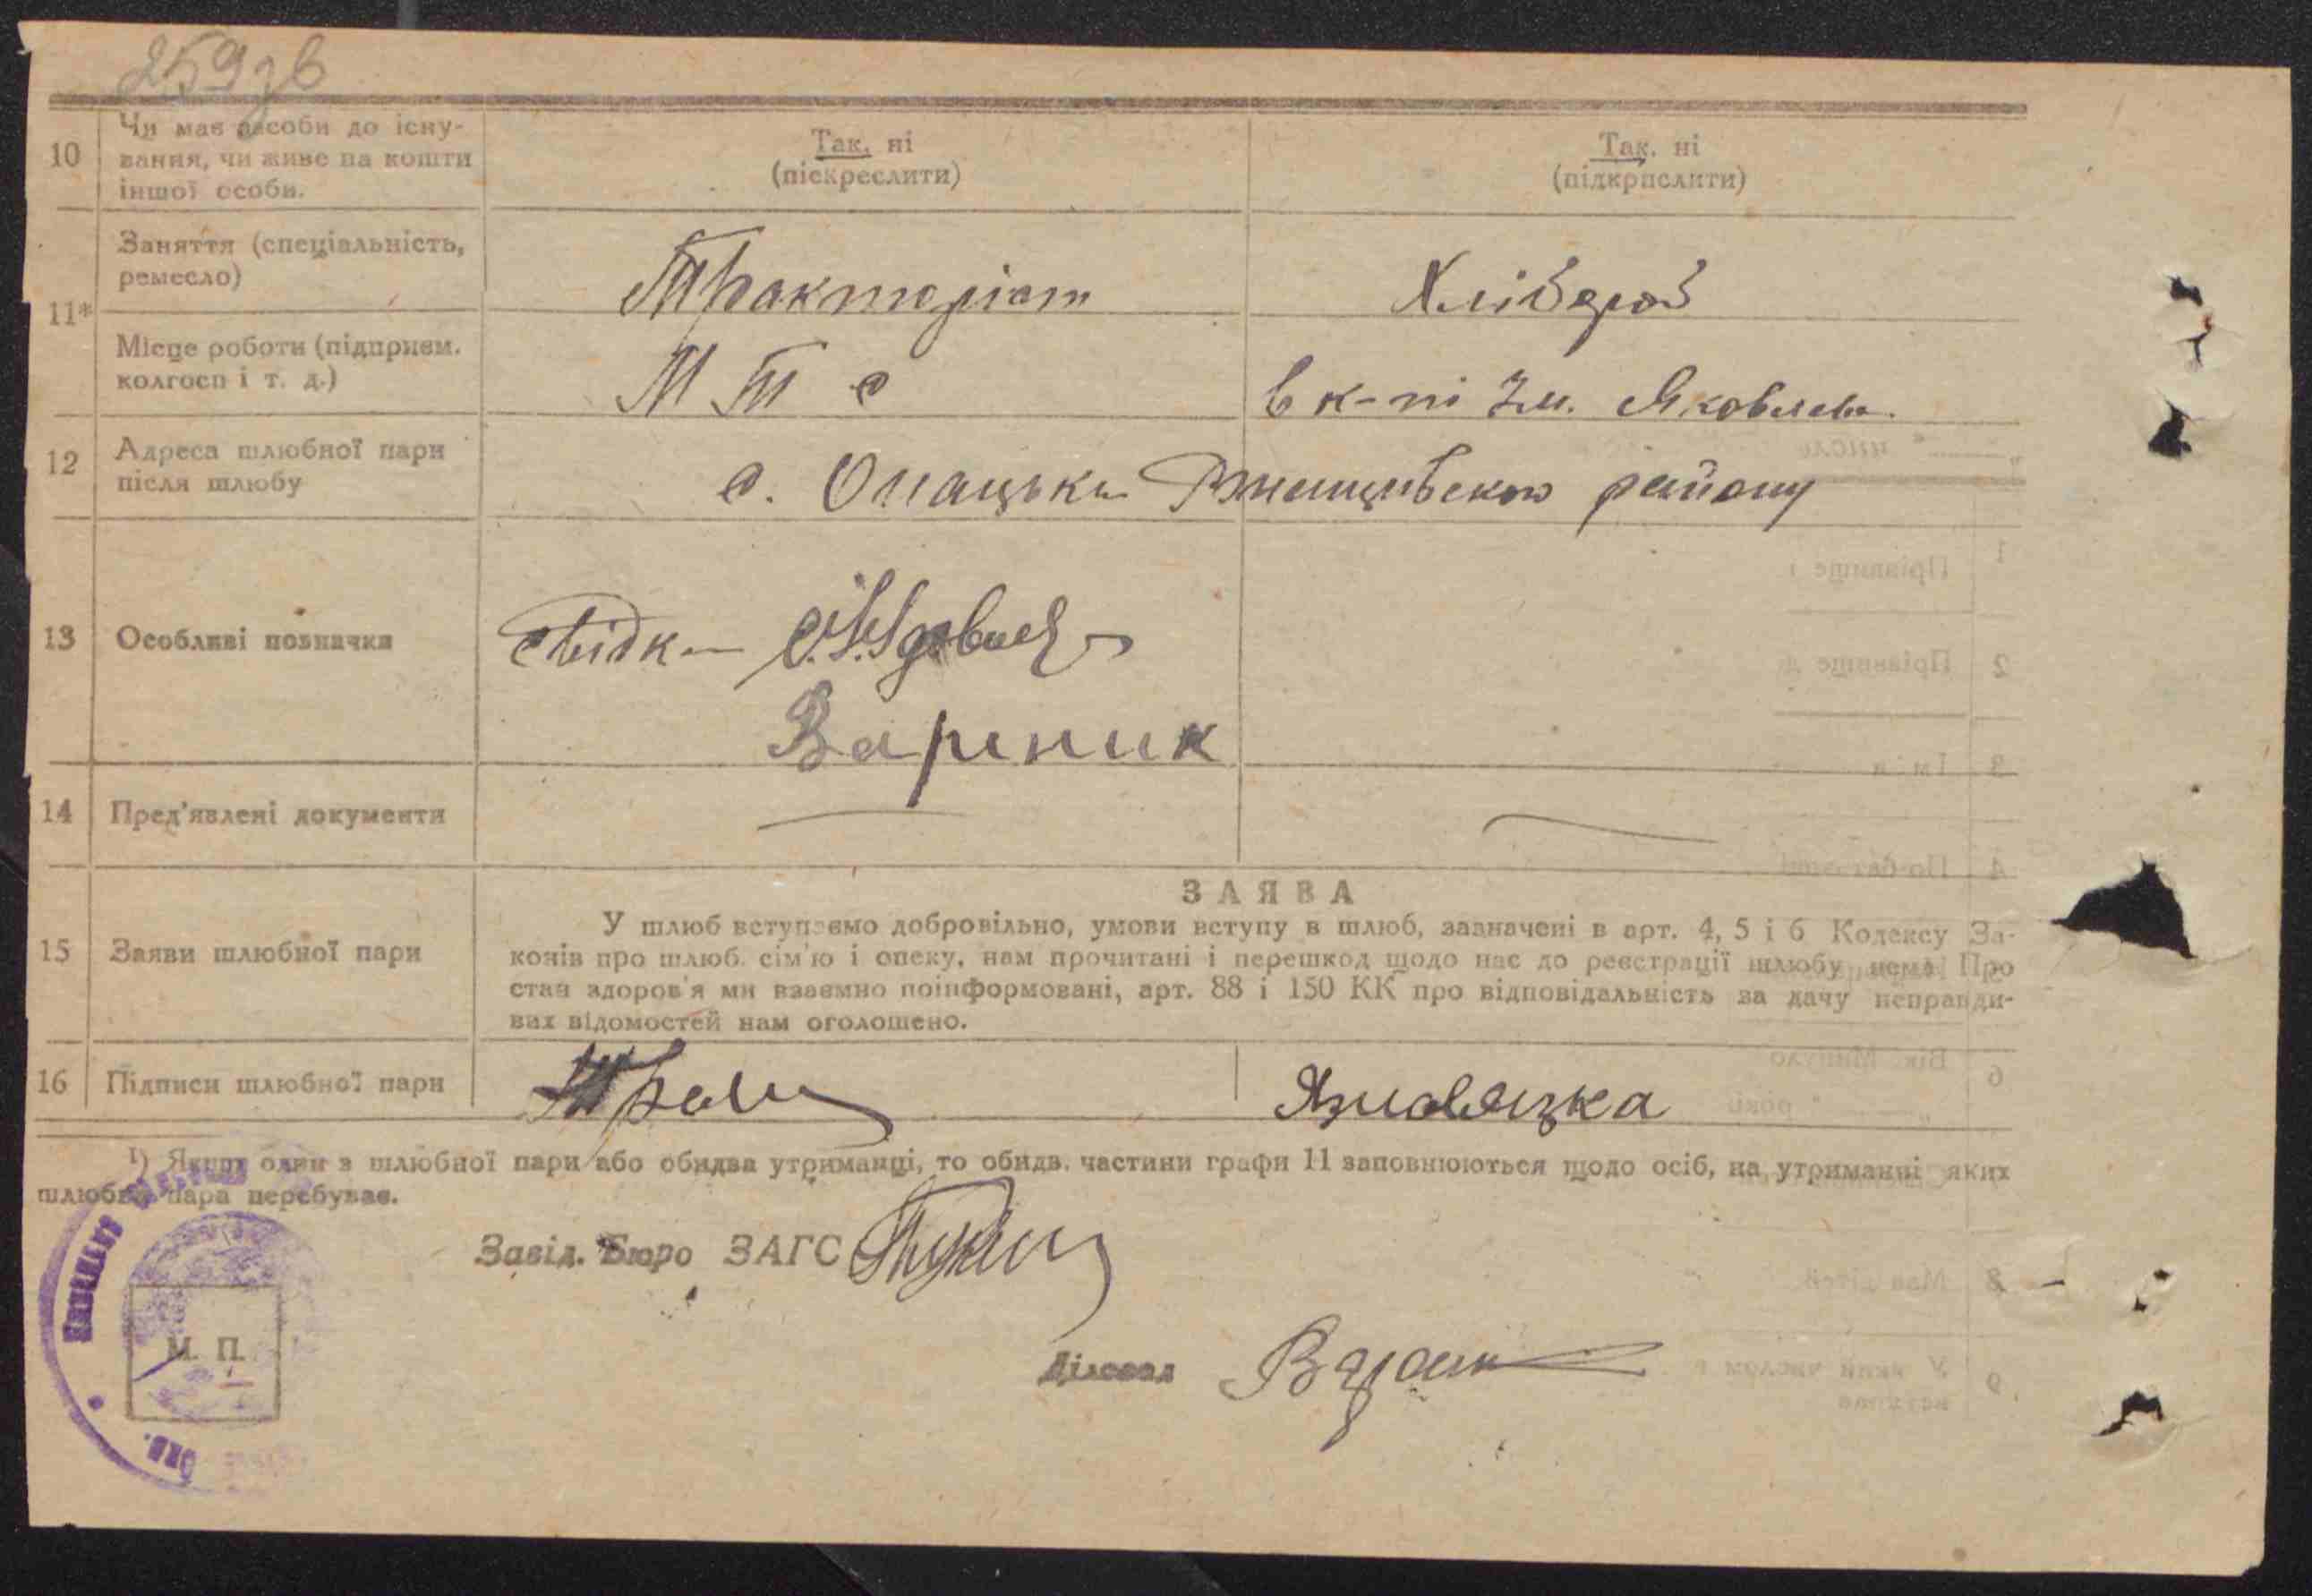 259зв
10 Чи має засоби до існу-
вання, чи живе на кошти
іншої особи.
Так, ні
(піскреслити)
Так. ні
(підкрпслити)
11* Заняття (спеціальність,
ремесло)
Тракторіст
Хлібороб
Місце роботи (підприєм.
колгосп і т. д.)
М Т С
в к-пі Ім. Яковлева.
12 Адреса шлюбної пари
після шлюбу
с. Опацьки Ржищівського району
13 Особливі позначки
Свідки
Вареник
14 Пред'явлені документи
15 Заяви шлюбної пари
ЗАЯВА
У шлюб вступаємо добровільно, умови вступу в шлюб, зазначені в арт. 4, 5 і 6 Кодексу За-
конів про шлюб. сім'ю і опеку, нам прочитані і перешкод щодо нас до реєстрації шлюбу нема Про
стан здоров'я ми взаємно поінформовані, арт. 88 і 150 КК про відповідальність за дачу неправди-
вих відомостей нам оголошено.
16 Підписи шлюбної пари
1) Якщо один з шлюбної пари або обидва утриманці, то обидв. частини графи 11 заповнюються щодо осіб, на утриманні яких
шлюбна пара перебуває.
Завід. Бюро ЗАГС
М. П.
Діловод